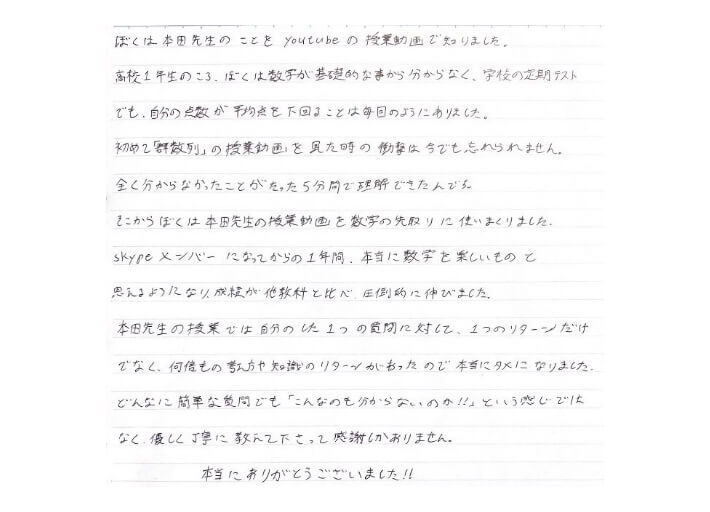 ぼくは本田先生のことをyoutubeの授業動画で知りました。
高校1年生のころ、ぼくは数学が基礎的な事から分からなく、学校の定期テスト
でも、自分の点数が平均点を下回ることは毎回のようにありました。
初めて「群数列」の授業動画を見た時の衝撃は今でも忘れられません。
全く分からなかったことがたった5分間で理解できたんです。
そこからぼくは本田先生の授業動画を数学の先取りに使いまくりました。
skypeメンバーになってからの1年間、本当に数学を楽しいものと
思えるようになり、成績が他教科と比べ、圧倒的に伸びました。
本田先生の授業では自分のした1つの質問に対して、1つのリターンだけ
でなく、何倍もの考え方や知識のリターンがあったので本当にタメになりました。
どんなに簡単な質問でも「こんなのも分からないのか!!」という感じでは
なく、優しく丁寧に教えて下さって感謝しかありません。
本当にありがとうございました!!